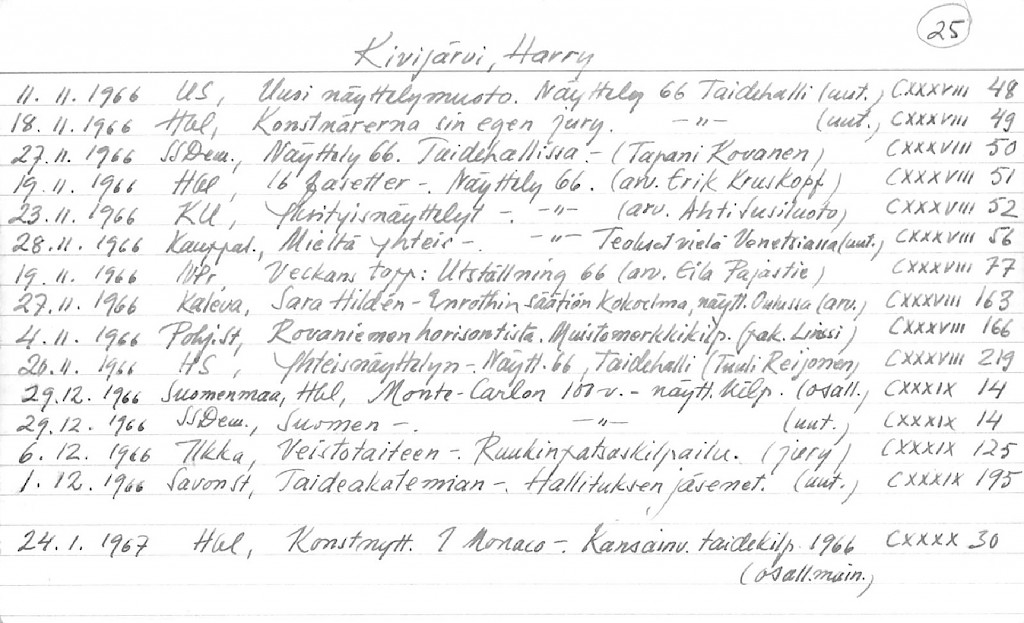 25
Kivijärvi, Harry
11. 11. 1966 US, Uusi näyttelymuoto. Näyttely 66 Taidehalli (uut.) CXXXVIII 48
18. 11. 1966 Hbl, Konstnärerna sin egen jury. -"- (uut.) CXXXVIII 49
27. 11. 1966 SSDem., Näyttely 66. Taidehallissa - (Tapani Kovanen) CXXXVIII 50
19. 11. 1966 Hbl, 16 facetter -. Näyttely 66. (arv. Erik Kruskopf) CXXXVIII 51
23. 11. 1966 KU, Yksityisnäyttelyt -. -"- (arv. Ahti Susiluoto) CXXXVIII 52
28. 11. 1966 Kauppal., Mieltä yhteis-. -"- Teokset vielä Venetsiassa (uut.) CXXXVIII 56
19. 11. 1966 NPr Veckans topp: Utställning 66 (arv. Eila Pajastie) CXXXVIII 77
27. 11. 1966 Kaleva, Sara Hildén - Enrothin säätiön kokoelma, näytt. Oulussa (arv.) CXXXVIII 163
4. 11. 1966 Pohj.st, Rovaniemen horisontista. Muistomerkkikilp. CXXXVIII 166
20. 11. 1966 HS, Yhteisnäyttelyn -. Näytt. 66, Taidehalli (Tuuli Reijonen) CXXXVIII 219
29. 12. 1966 Suomenmaa, Hbl, Monte-Carlon 100-v. - näytt. Kilp. (osall.) CXXXIX 14
29. 12. 1966 SSDem., Suomen -. -"- (uut.) CXXXIX 14
6. 12. 1966 Ilkka, Veistotaiteen -. Ruukinpatsaskilpailu. (jury) CXXXIX 125
1. 12. 1966 Savon St, Taideakatemian -. Hallituksen jäsenet. (uut.) CXXXIX 195
24. 1. 1967 Hbl, Konstnytt. I Monaco -. Kansainv. taidekilp. 1966 CXXXX 30
(osall. main.)